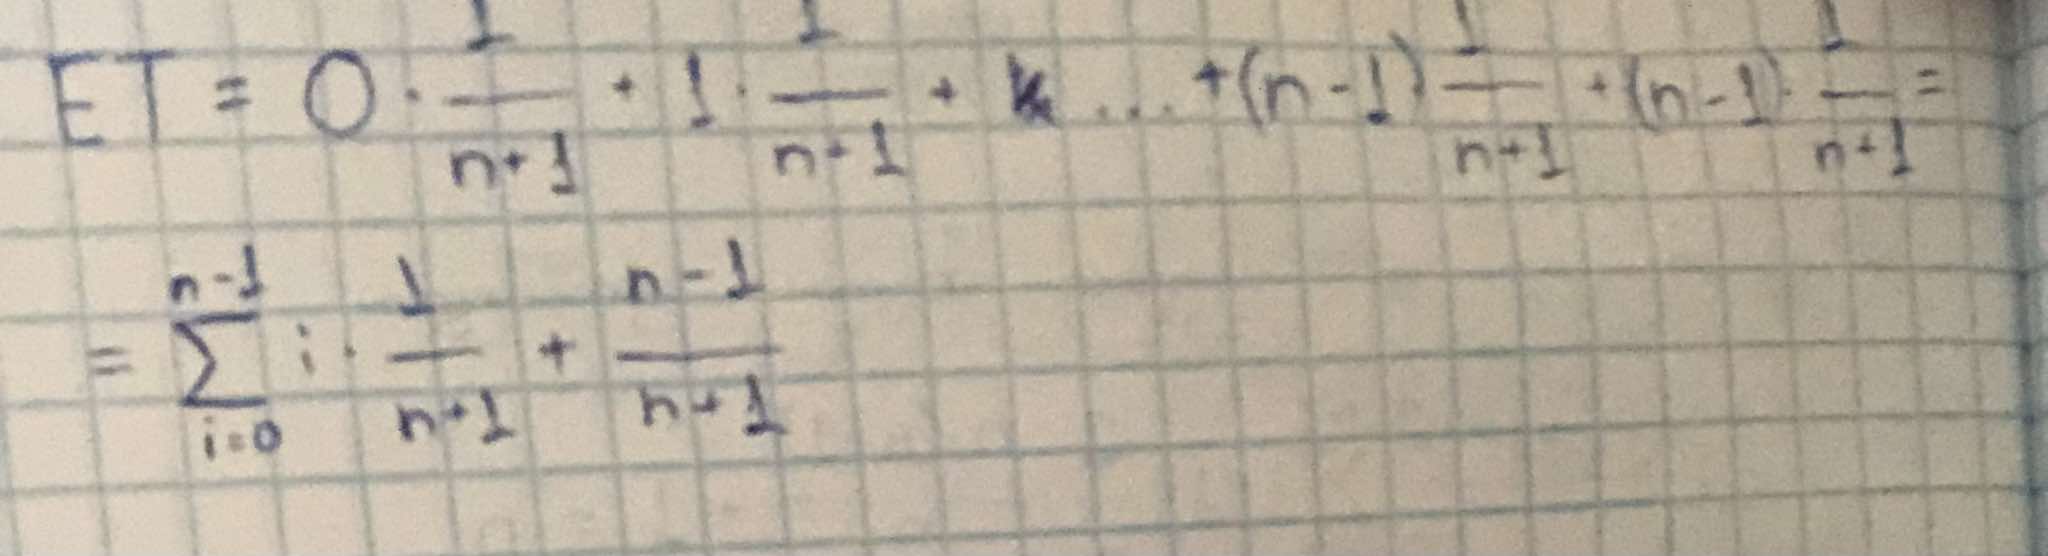 ET = 0 · 1/(n+1) + 1 · 1/(n+1) + ... + (n-1) 1/(n+1) + (n-1) · 1/(n+1) =
= ∑_{i=0}^{n-1} i · 1/(n+1) + (n-1)/(n+1)